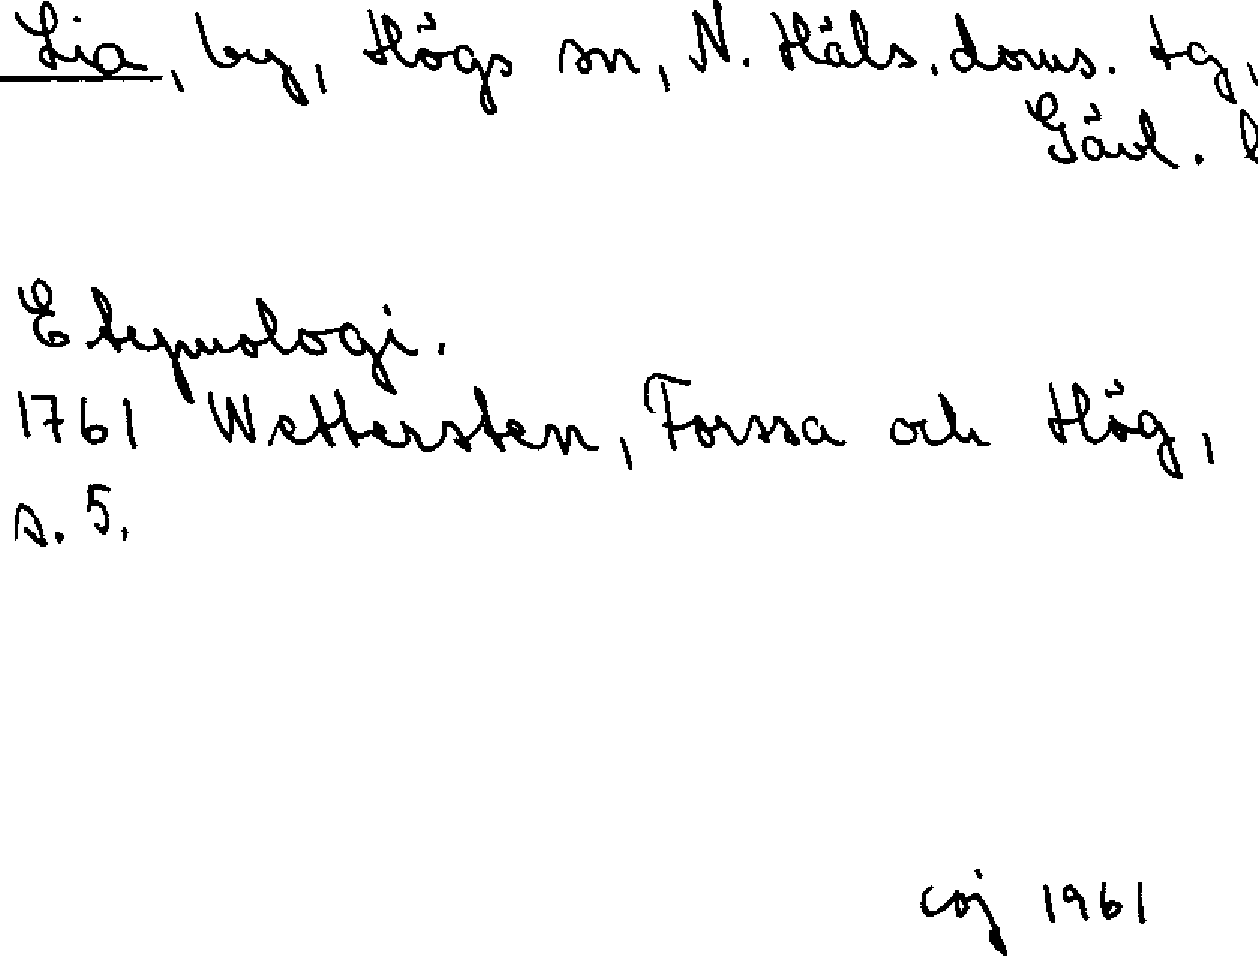 Lia, by, Högs sn, N. Häls. doms. tg,
Gävl. l
Etymologi.
1761 Wettersten, Forssa och Hög,
s. 5.
coj 1961